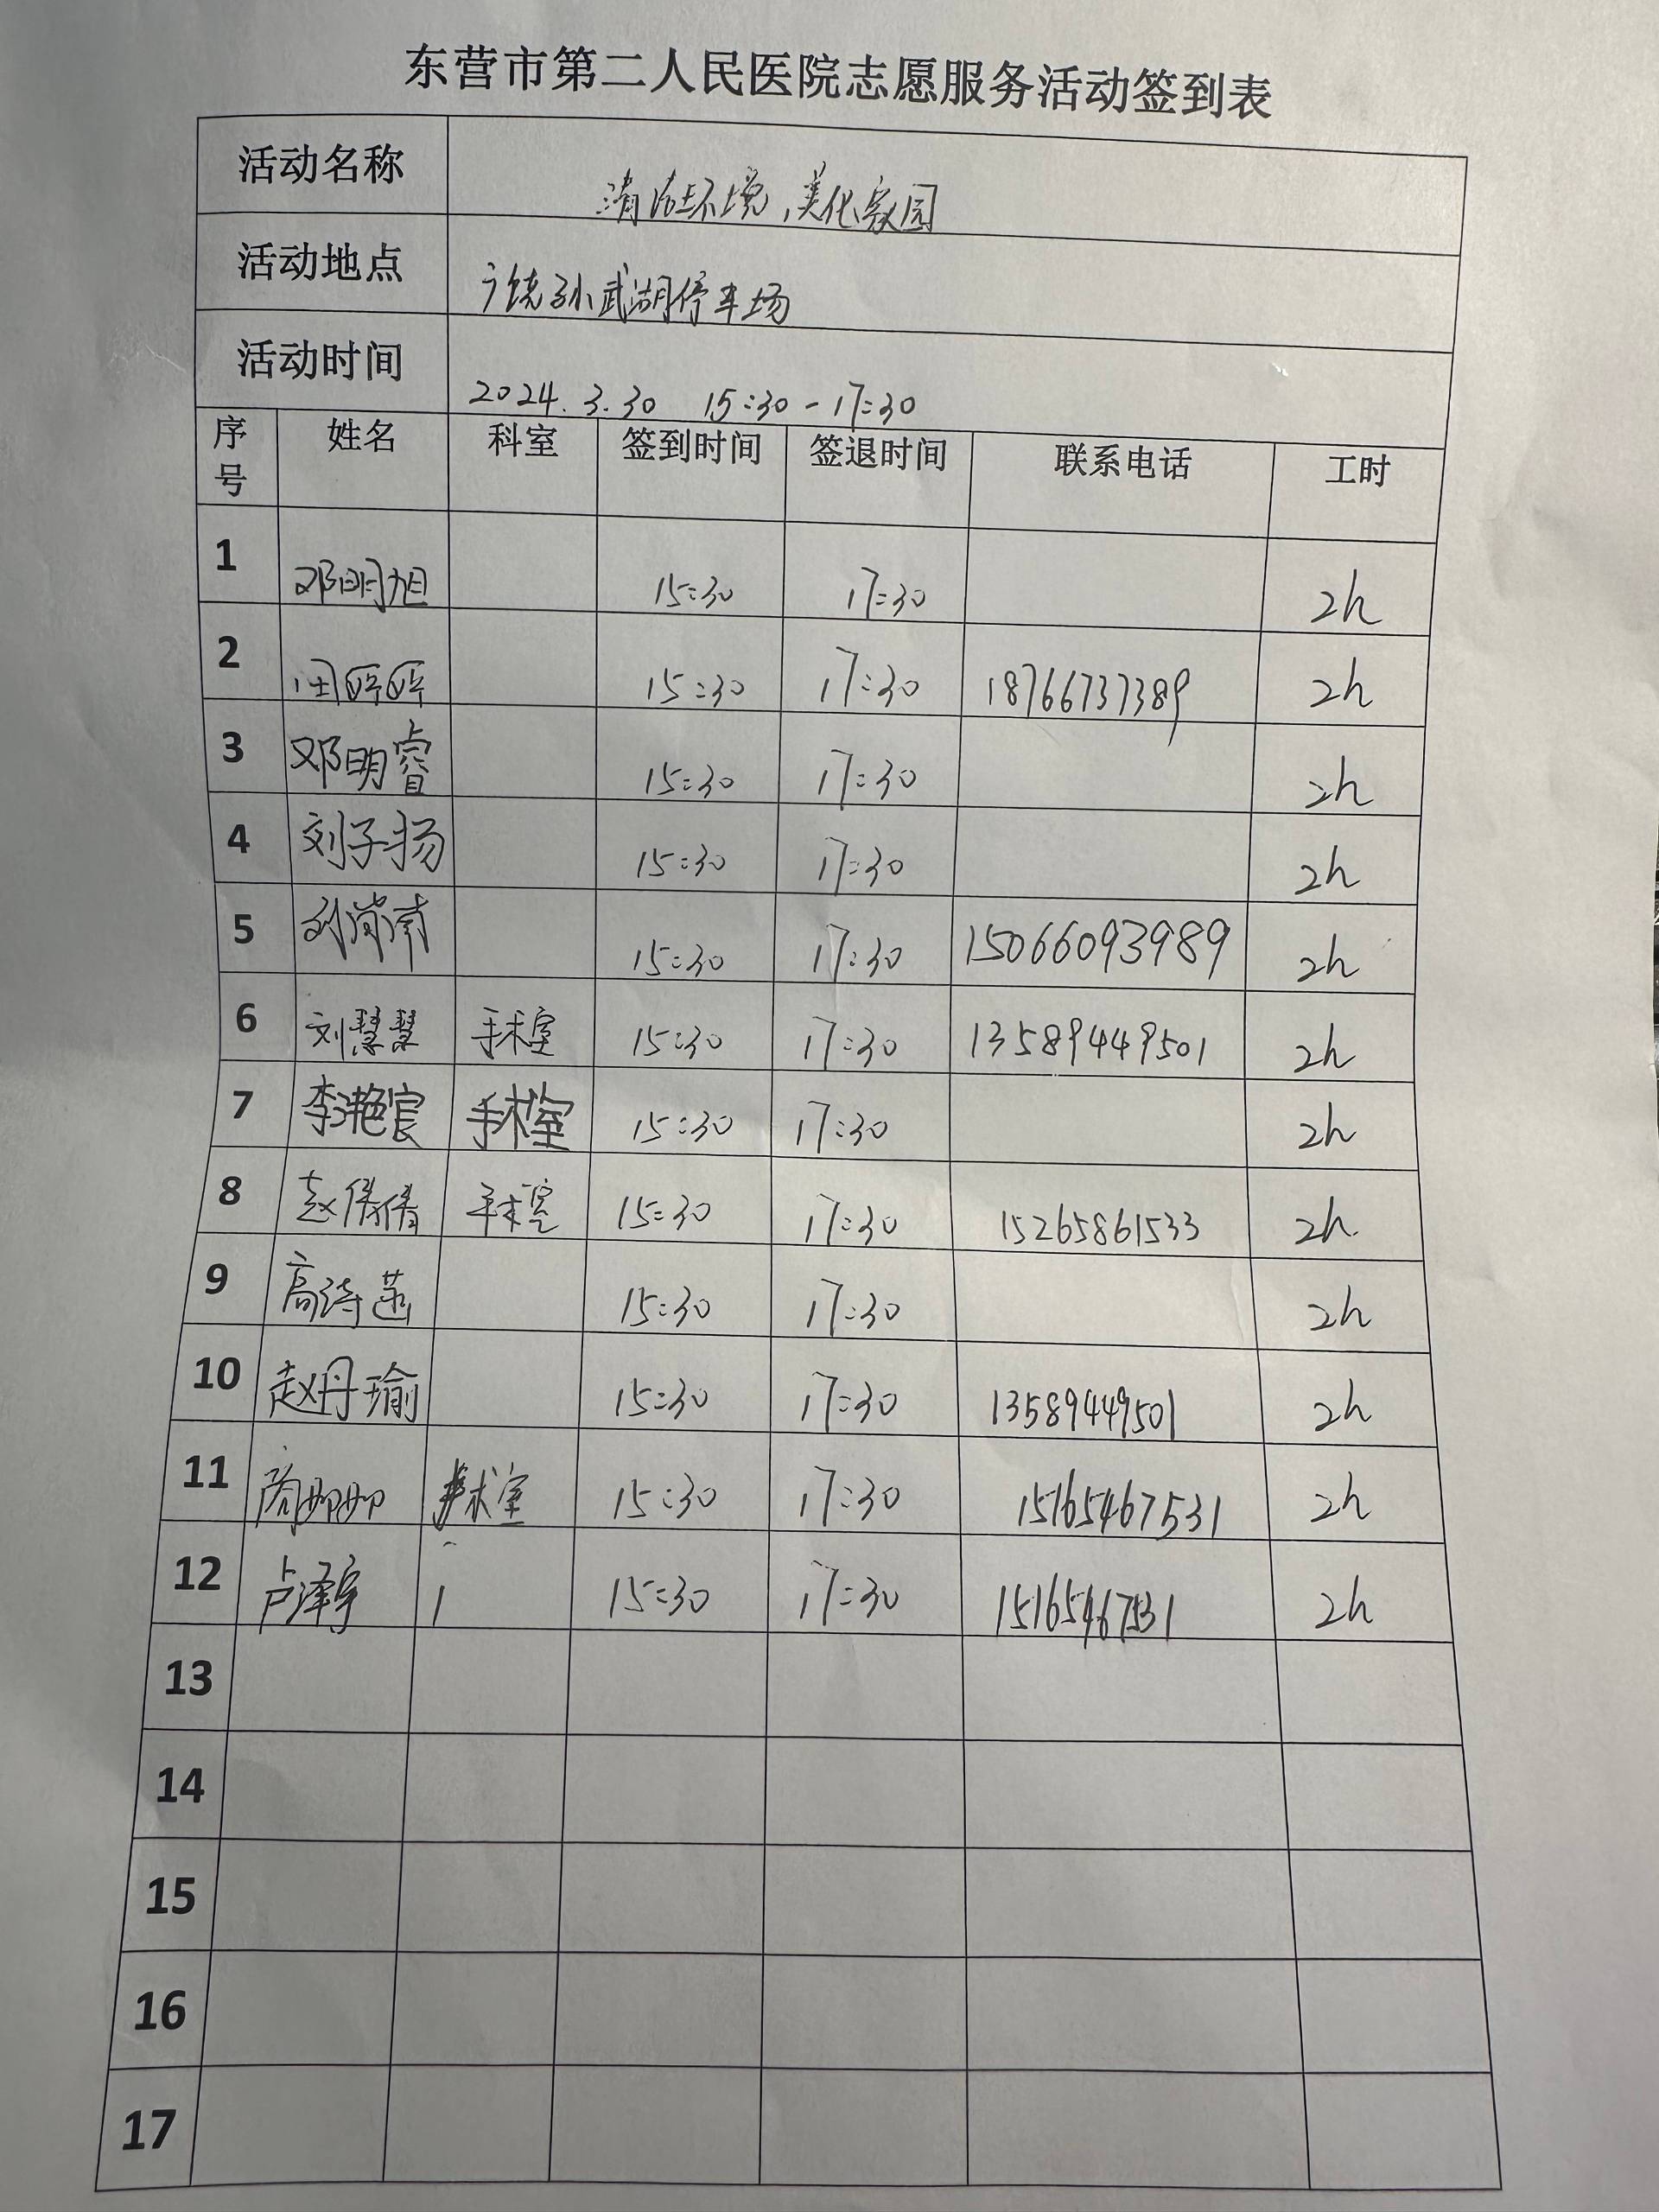 东营市第二人民医院志愿服务活动签到表
活动名称 清洁环境,美化家园
活动地点 广饶孙武湖停车场
活动时间 2024.3.30 15:30-17:30
序号 姓名 科室 签到时间 签退时间 联系电话 工时
1 邓明旭 15:30 17:30 2h
2 15:30 17:30 18766737389 2h
3 邓明睿 15:30 17:30 2h
4 刘子扬 15:30 17:30 2h
5 刘 15:30 17:30 15066093989 2h
6 刘慧慧 手术室 15:30 17:30 13589449501 2h
7 李滟宸 手术室 15:30 17:30 2h
8 赵倩倩 手术室 15:30 17:30 15265861533 2h.
9 高诗菡 15:30 17:30 2h
10 赵丹瑜 15:30 17:30 13589449501 2h
11 手术室 15:30 17:30 15165467531 2h
12 卢泽宇 15:30 17:30 15165467531 2h
13
14
15
16
17